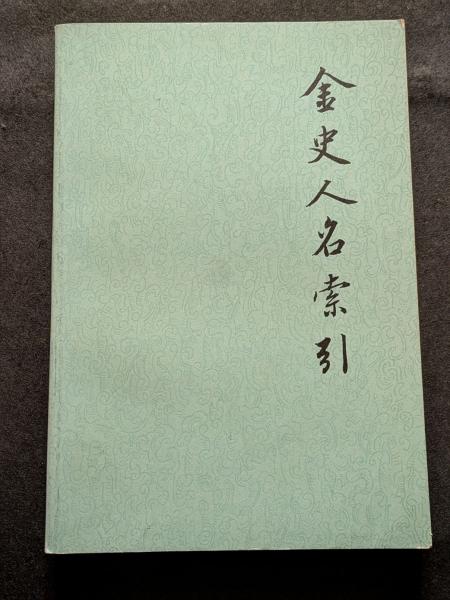 金史人名索引